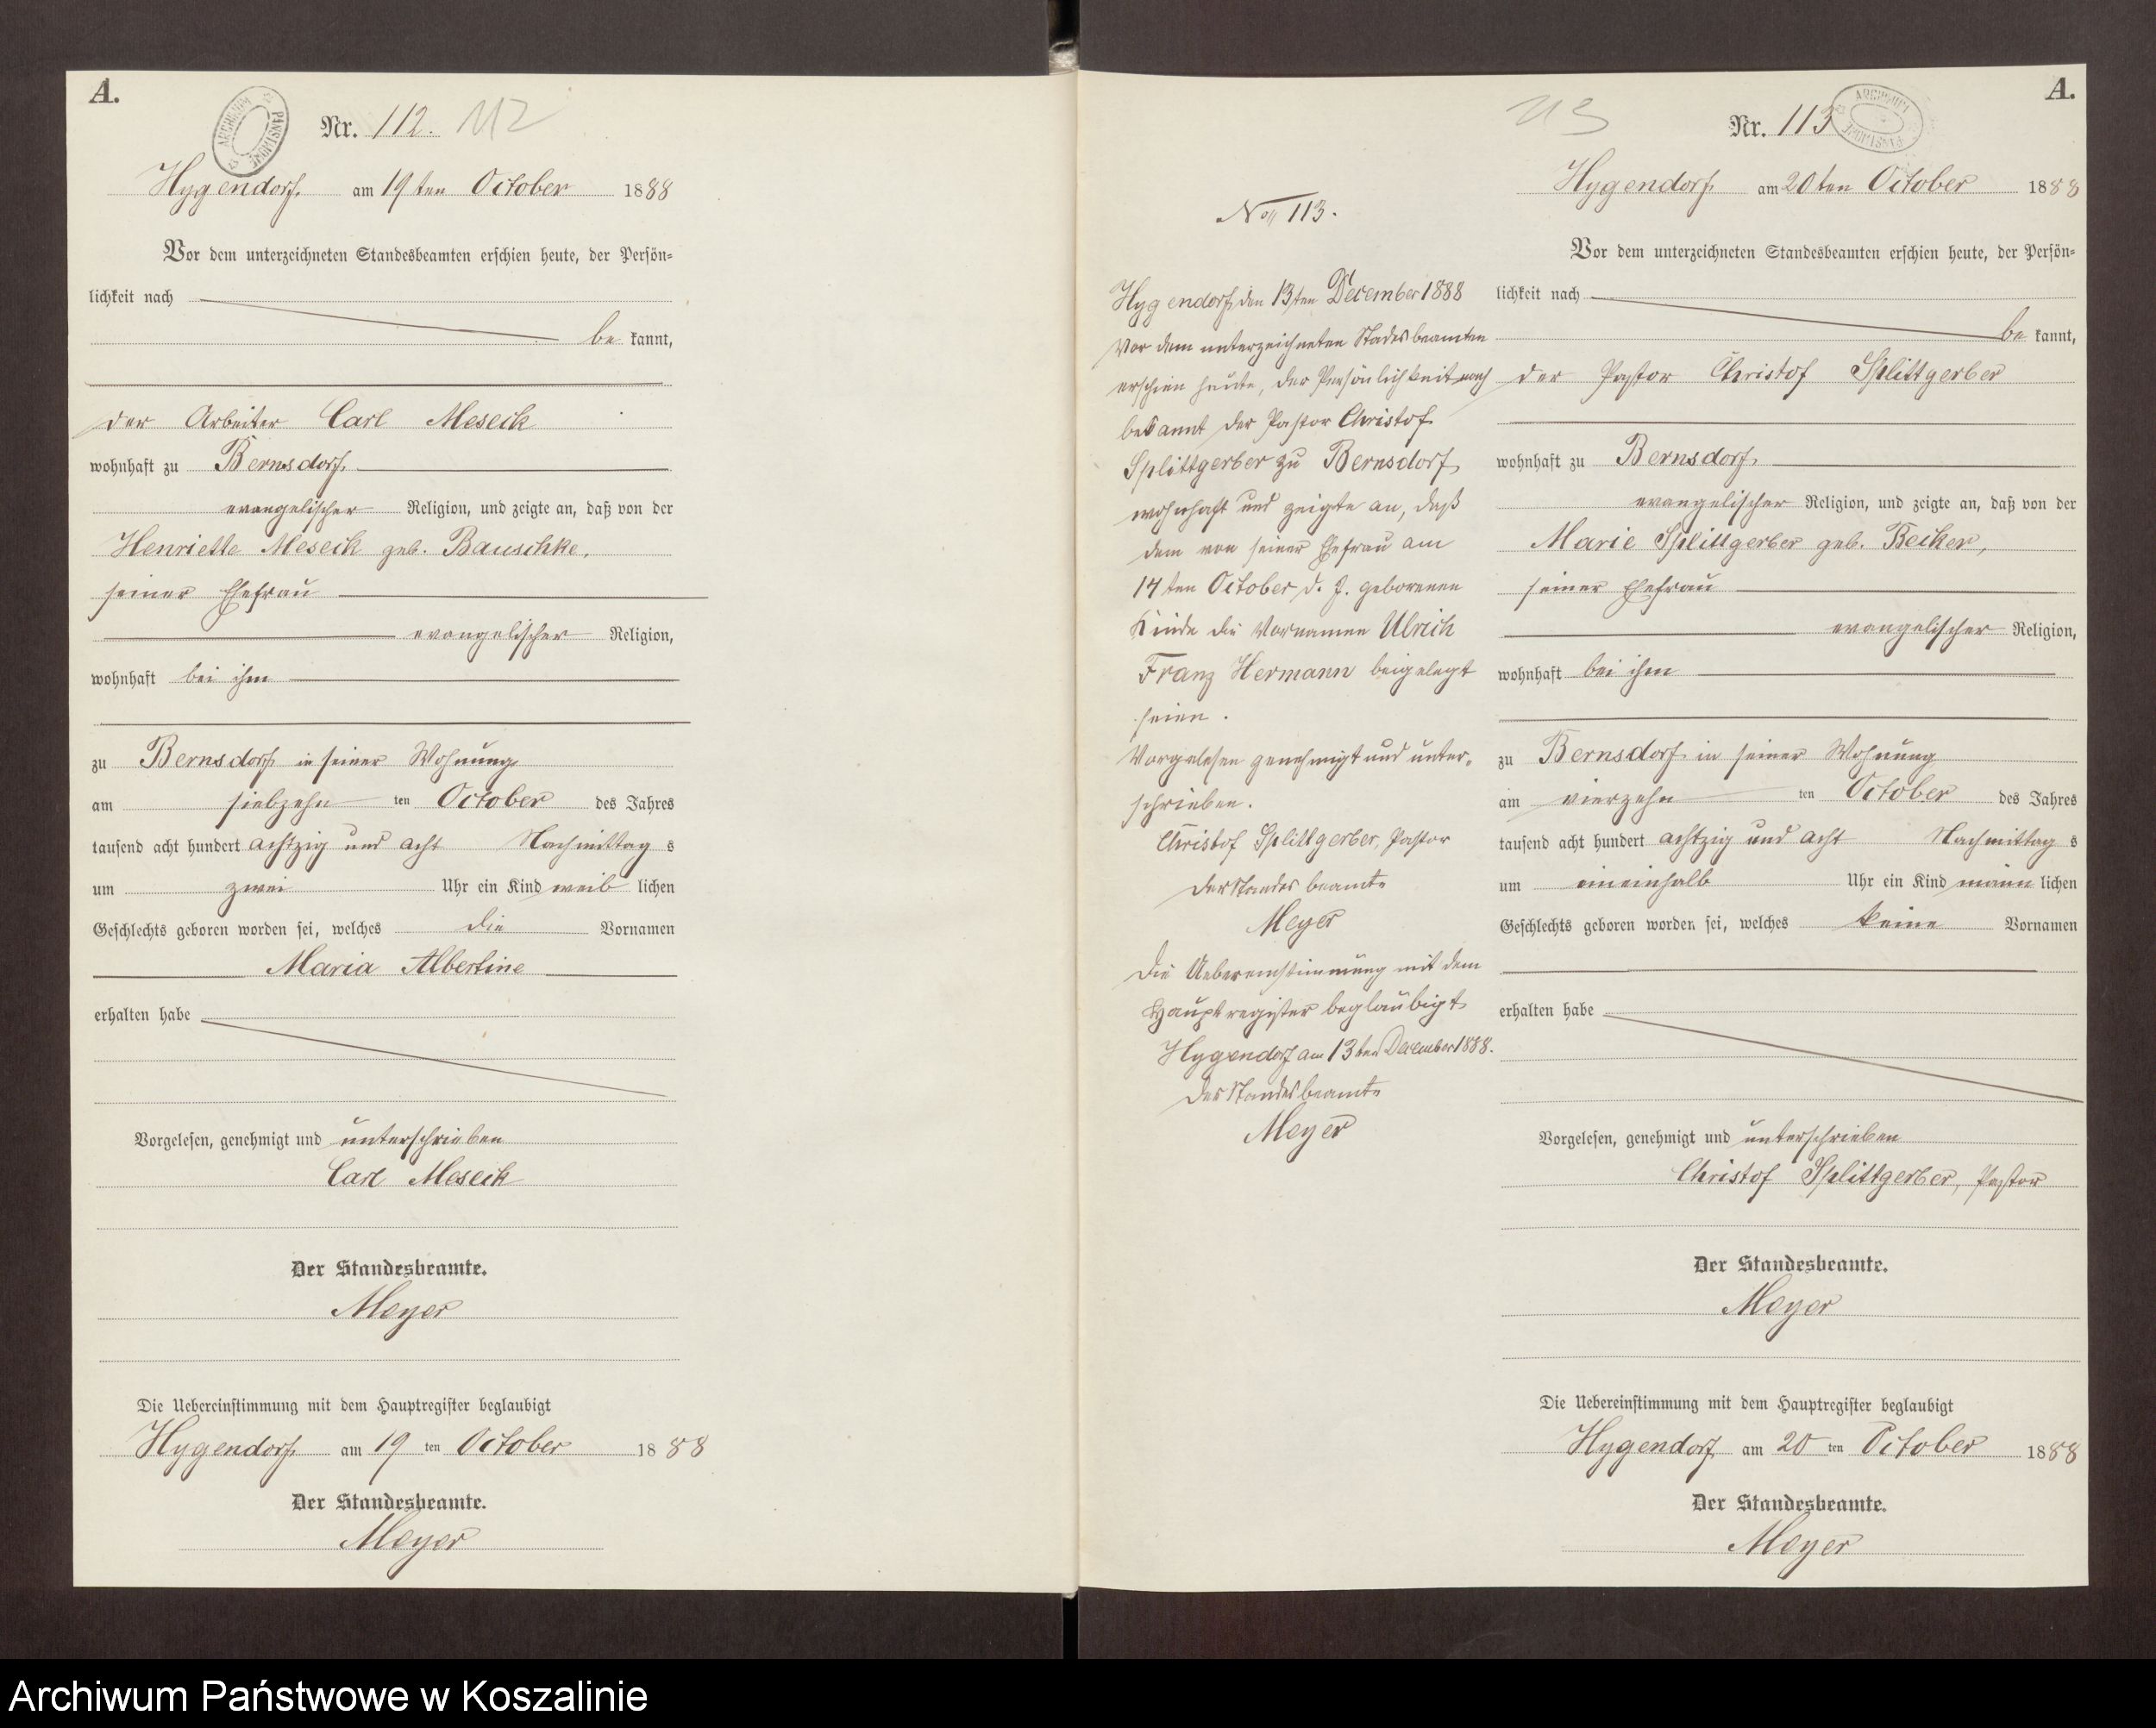 A.
Nr. 112. 112
Hygendorf am 19ten October 1888
Vor dem unterzeichneten Standesbeamten erschien heute, der Persön=
lichkeit nach
be kannt,
der Arbeiter Carl Meseck
wohnhaft zu Bernsdorf
evangelischer Religion, und zeigte an, daß von der
Henriette Meseck geb. Bauschke,
seiner Ehefrau
evangelischer Religion,
wohnhaft bei ihm
zu Bernsdorf in seiner Wohnung
am siebzehn ten October des Jahres
tausend acht hundert achtzig und acht Nachmittag s
um zwei Uhr ein Kind weib lichen
Geschlechts geboren worden sei, welches die Vornamen
Maria Albertine
erhalten habe
Vorgelesen, genehmigt und unterschrieben
Carl Meseck
Der Standesbeamte.
Meyer
Die Uebereinstimmung mit dem Hauptregister beglaubigt
Hygendorf am 19 ten October 1888
Der Standesbeamte.
Meyer
113
No 113.
Hygendorf, den 13ten December 1888
Vor dem unterzeichneten Stadesbeamten
erschien heute, der Persönlichkeit nach
bekannt der Pastor Christof
Splittgerber zu Bernsdorf
wohnhaft und zeigte an, daß
dem von seiner Ehefrau am
14ten October d. J. geborenen
Kinde die Vornamen Ulrich
Franz Hermann beigelegt
seien.
Vorgelesen genehmigt und unter=
schrieben.
Christof Splittgerber, Pastor
Der Standesbeamte
Meyer
Die Uebereinstimmung mit dem
Hauptregister beglaubigt
Hygendorf am 13ten December 1888.
Der Standesbeamte
Meyer
A.
Nr. 113
Hygendorf am 20ten October 1888
Vor dem unterzeichneten Standesbeamten erschien heute, der Persön=
lichkeit nach
be kannt,
der Pastor Christof Splittgerber
wohnhaft zu Bernsdorf
evangelischer Religion, und zeigte an, daß von der
Marie Splittgerber geb. Becker,
seiner Ehefrau
evangelischer Religion,
wohnhaft bei ihm
zu Bernsdorf in seiner Wohnung
am vierzehn ten October des Jahres
tausend acht hundert achtzig und acht Nachmittag s
um eineinhalb Uhr ein Kind männ lichen
Geschlechts geboren worden sei, welches keine Vornamen
erhalten habe
Vorgelesen, genehmigt und unterschrieben
Christof Splittgerber, Pastor
Der Standesbeamte.
Meyer
Die Uebereinstimmung mit dem Hauptregister beglaubigt
Hygendorf am 20 ten October 1888
Der Standesbeamte.
Meyer
Archiwum Państwowe w Koszalinie